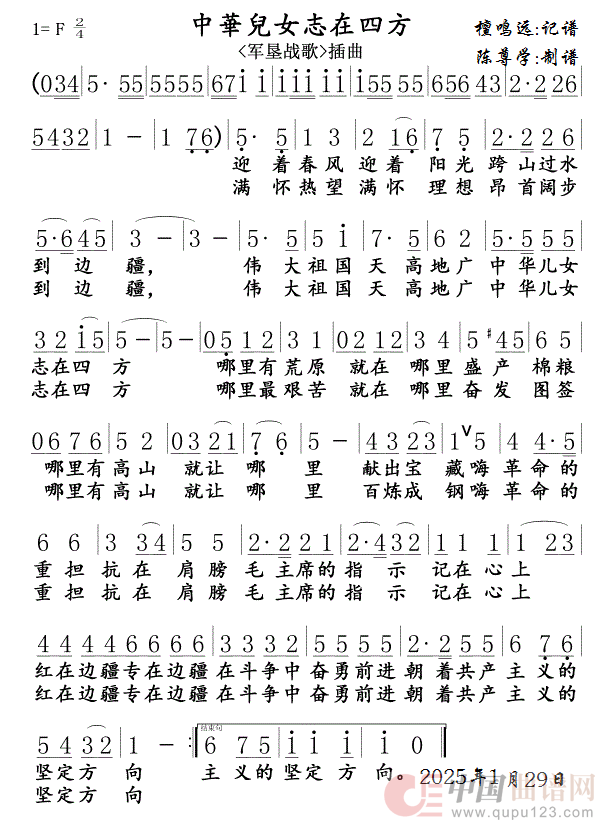 中華兒女志在四方
1= F 2/4
<军垦战歌>插曲
檀鸣远:记谱
陈尊学:制谱
(034 | 5· 55 | 5555 | 67i i | iiii | 7655 | 6543 | 2·226
5432 | 1 - | 1 76) | 5· 5 | 1 3 | 2 16 | 7 5 | 2·226
迎 着春风 迎着 阳光 跨山过水
满 怀热望 满怀 理想 昂首阔步
5·645 | 3 - | 3 - | 5· 5 | 5 i | 7· 5 | 6 2 | 5·555
到 边 疆， 伟 大祖国 天 高地广 中 华儿女
到 边 疆， 伟 大祖国 天 高地广 中 华儿女
3 2 i5 | 5 - | 5 - | 0512 | 3 3 | 0212 | 4 5 | #45 | 6 5
志在四 方 哪里有荒原 就在 哪里 盛产 棉粮
志在四 方 哪里最艰苦 就在 哪里 奋发 图签
0676 | 5 2 | 0321 | 7 6 | 5 - | 4323 | 1 ∨5 | 4 4·5
哪里有高山 就让 哪 里 献出宝 藏嗨革命的
哪里有高山 就让 哪 里 百炼成 钢嗨革命的
6 6 | 3 34 | 5 5 | 2·221 | 2·432 | 1 1 1 | 1 23
重担抗在 肩膀毛 主席的指 示 记在心上
重担抗在 肩膀毛 主席的指 示 记在心上
4 4 | 4466 | 3 3 | 3322 | 5 5 | 5 5 | 2·255 | 6 76
红在边疆专在边疆 在斗争中 奋勇前进 朝 着共产 主义的
红在边疆专在边疆 在斗争中 奋勇前进 朝 着共产 主义的
5432 | 1 - :‖ 结束句 6 75 | i i i | i 0 ‖
坚定方 向 主义的坚定方 向。
坚定方 向
2025年1月29日
中国曲谱网
www.qupu123.com